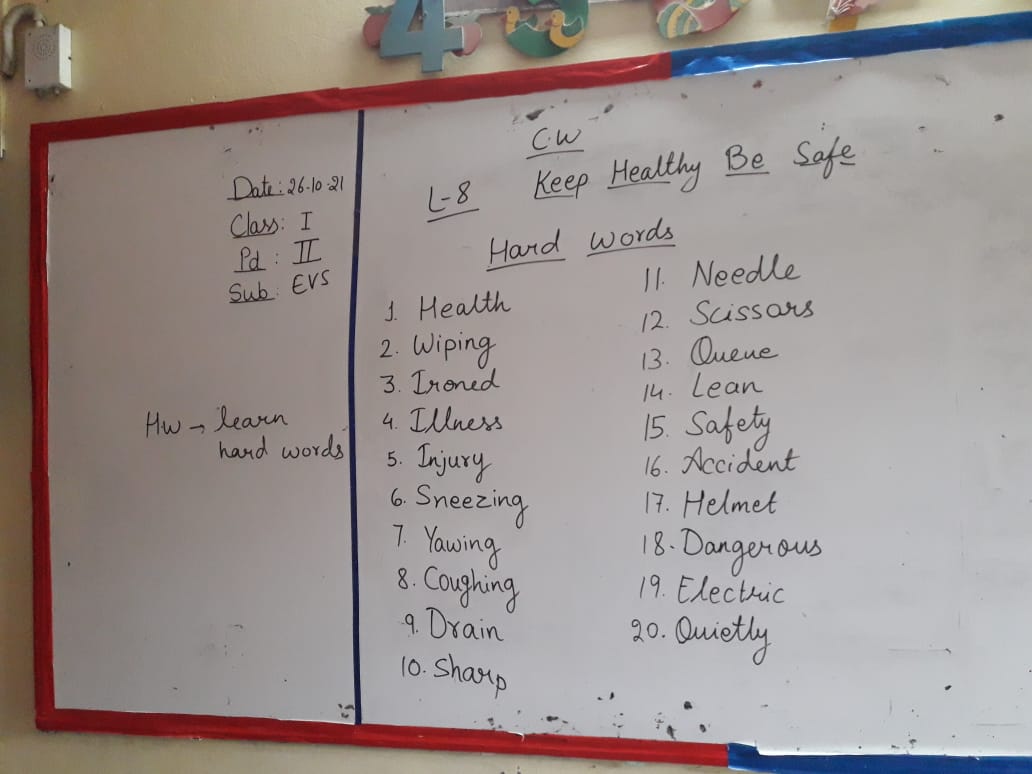 4
Date: 26-10-21
Class: I
Pd : II
Sub: EVS
Hw → learn
hard words
C.W
L-8 Keep Healthy Be Safe
Hard words
1. Health
2. Wiping
3. Ironed
4. Illness
5. Injury
6. Sneezing
7. Yawing
8. Coughing
9. Drain
10. Sharp
11. Needle
12. Scissors
13. Queue
14. Lean
15. Safety
16. Accident
17. Helmet
18. Dangerous
19. Electric
20. Quietly